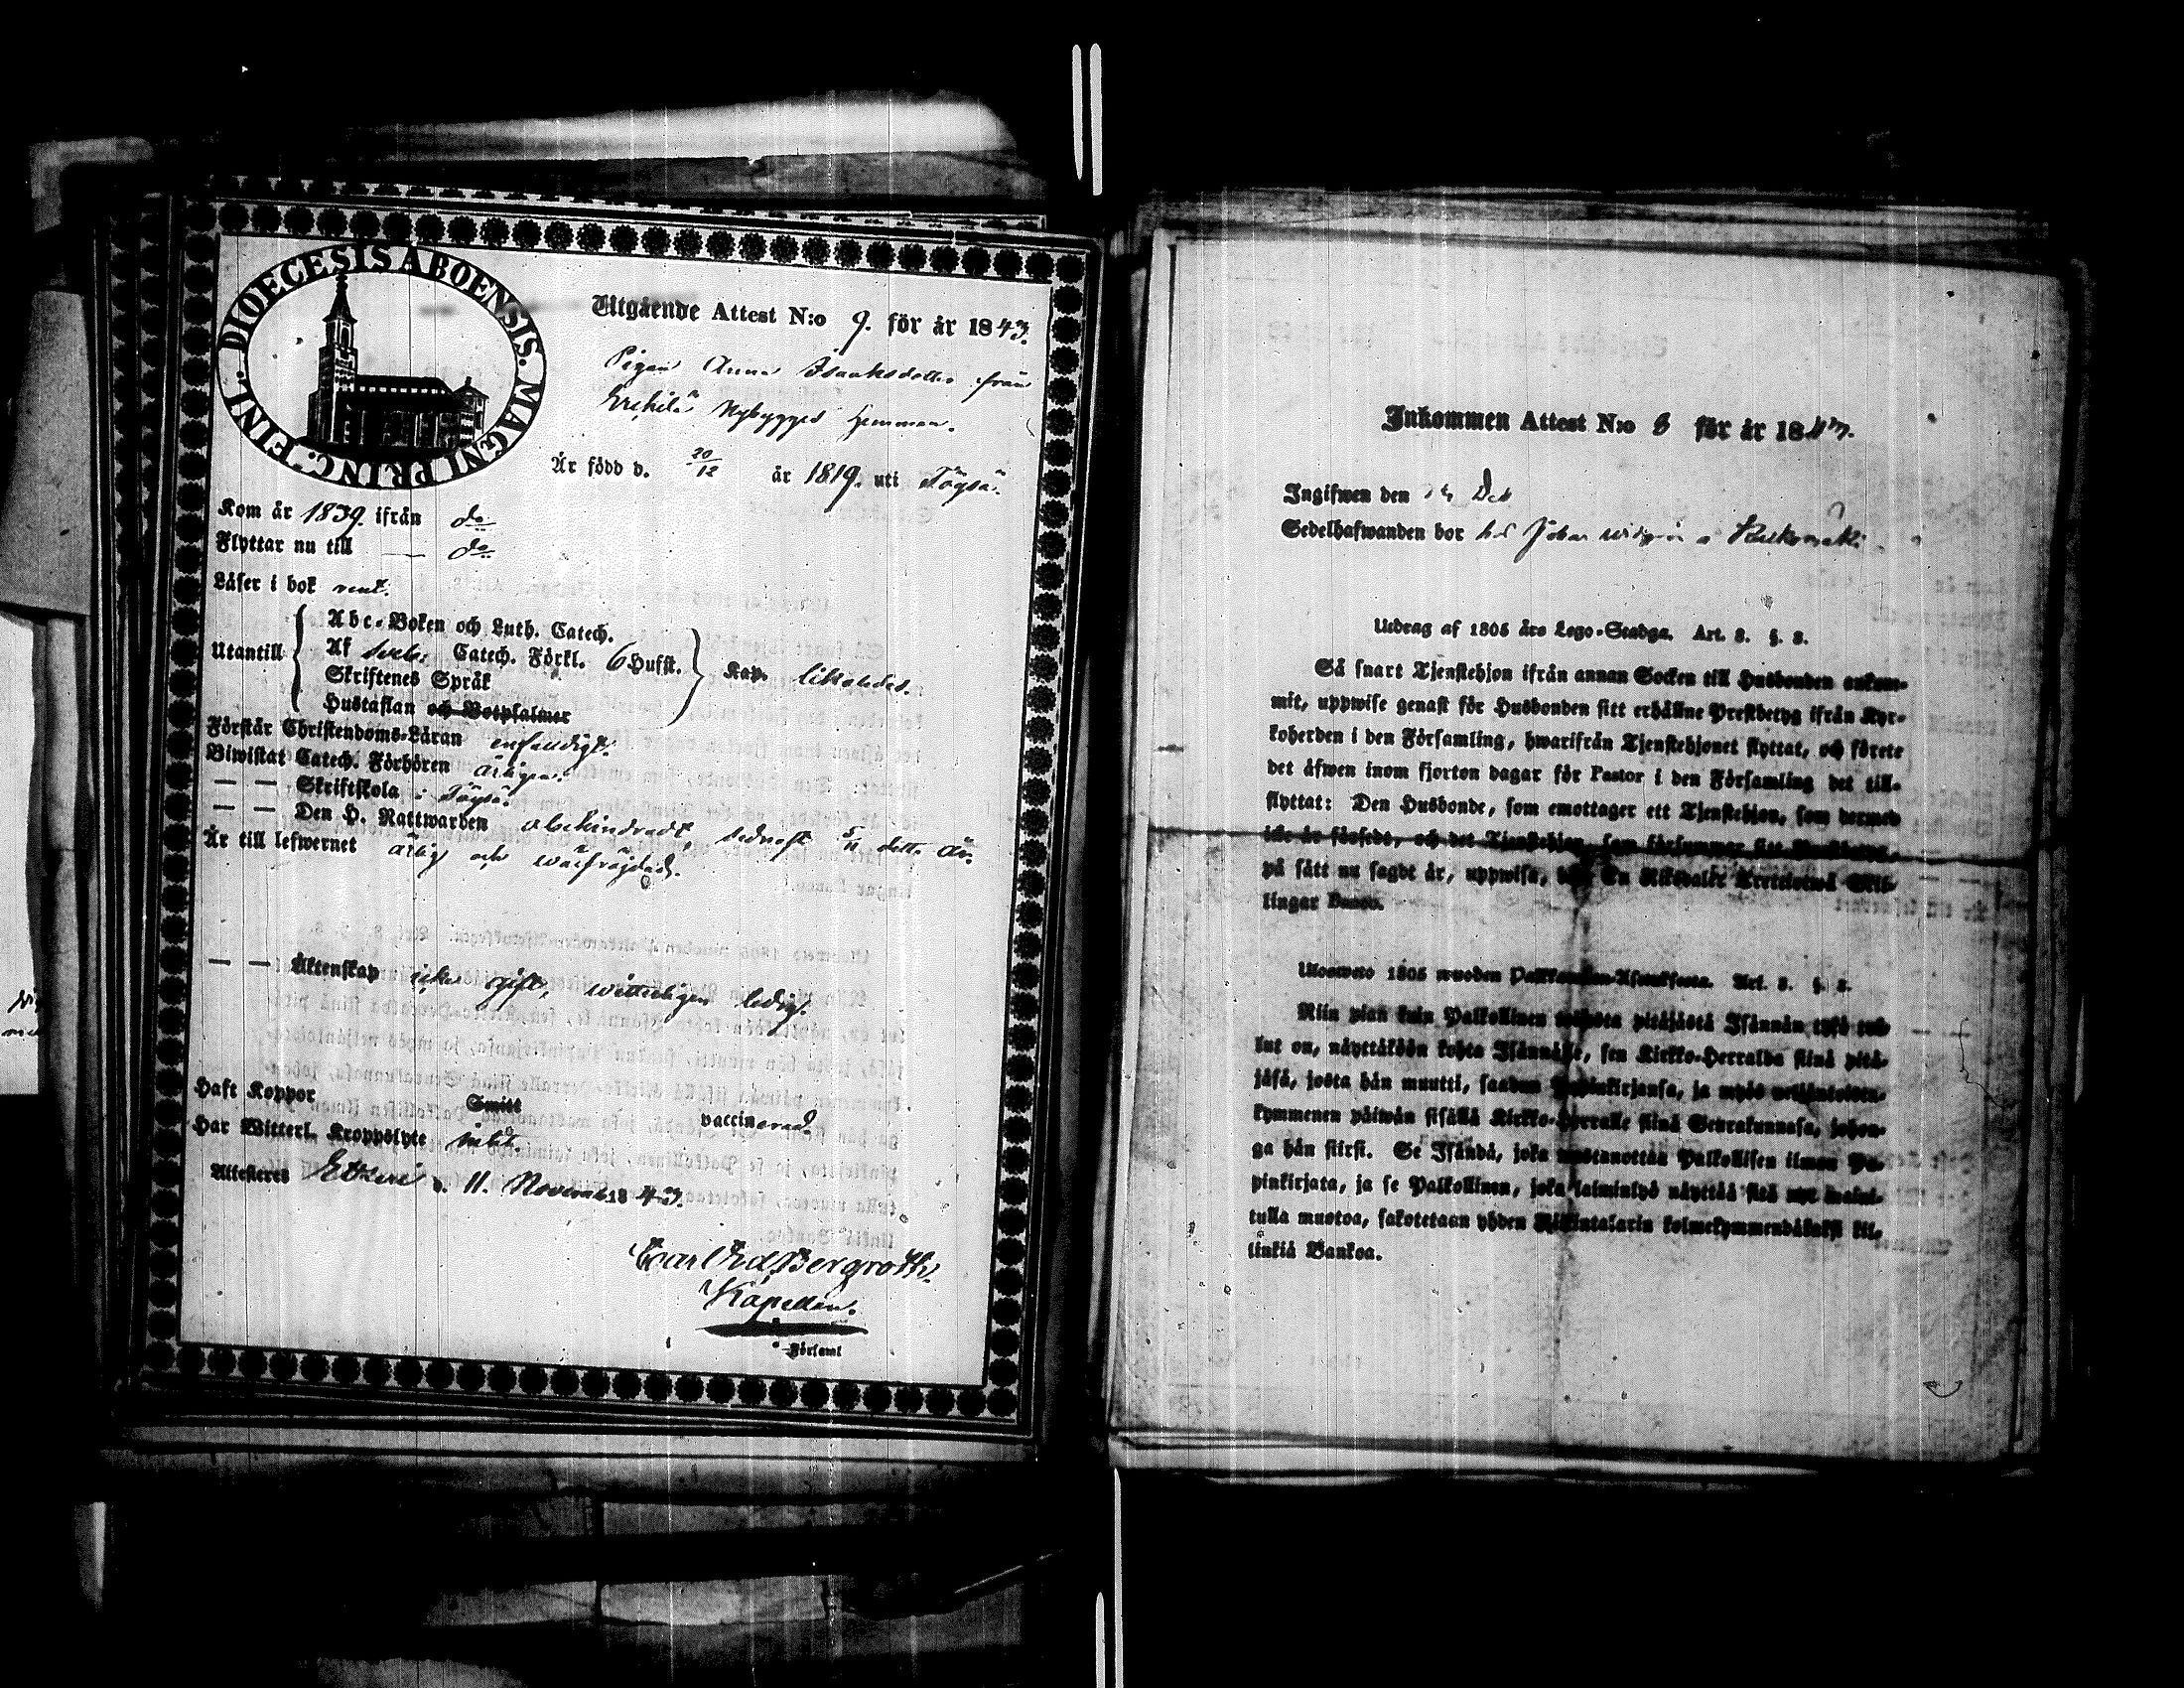 DIOECESIS ABOENSIS. MAGNI PRINC. FINL.
Utgående Attest N:o 9. för år 1843.
Pigan Anna Isaaksdotter från
Nybygges hemman.
Är född d. 20/12 år 1819. uti Töysä.
Kom år 1839. ifrån do
Flyttar nu till — do
Läser i bok rent.
Utantill
Abc-Boken och Luth. Catech.
Af Sveb. Catech. Förkl. 6 Hufst.
Skriftenes Språk
Hustaflan och Botpsalmer
Kap. likaledes.
Förstår Christendoms-Läran enfaldigt.
Biwistat Catech. Förhören årligen.
— — Skriftskola i Töysä.
— — Den H. Nattwarden obehindradt, sednast 5/11 detta år.
Är till lefwernet ärlig och wälfrägdad.
— — Äktenskap icke gift, witterligen ledig.
Haft Koppor Smitt vaccinerad.
Har Witterl. Kroppslyte intet.
Attesteras Etseri d. 11. Novemb. 1843.
Carl Fred. Bergroth.
Kapellan.
Församl
Inkommen Attest N:o 8 för år 1843.
Ingifwen den Dec
Sedelhafwanden bor hos Johan
Utdrag af 1805 års Lego-Stadga. Art. 8. §. 8.
Så snart Tjenstehjon ifrån annan Socken till Husbonden ankom-
mit, uppwise genast för Husbonden sitt erhållne Prestbetyg ifrån Kyr-
koherden i den Församling, hwarifrån Tjenstehjonet flyttat, och förete
det äfwen inom fjorton dagar för Pastor i den Församling det till-
flyttat: Den Husbonde, som emottager ett Tjenstehjon, som dermed
icke är försedt, och det Tjenstehjon, som försummar sitt
på sätt nu sagdt är, uppwisa, En Riksdaler Trettiotwå Skil-
lingar Banco.
Ulosweto 1805 wuoden Palkkawäen-Asetuksesta. Art. 8. §. 8.
Niin pian kuin Palkollinen pitäjästä Isännän tykö tul-
lut on, näyttäköön kohta Isännälle, sen Kirkko-Herralda siinä pitä-
jäsä, josta hän muutti, saadun Papinkirjansa, ja myös neljäntoista-
kymmenen päiwän sisällä Kirkko-Herralle siinä Seurakunnasa, johon-
ga hän siirsi. Se Isändä, joka wastanottaa Palkollisen ilman Pa-
pinkirjata, ja se Palkollinen, joka laiminlyö näyttää sitä nyt maini-
tulla muotoa, sakotetaan yhden Riikintalarin kolmekymmendäkaksi kil-
linkiä Bankoa.